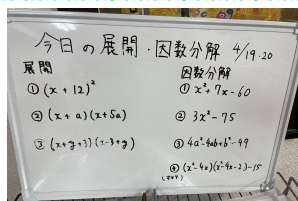 今日の展開・因数分解 4/19.20
展開
① (x + 12)²
② (x + a)(x+5a)
③ (x+y+3)(x-3+y)
因数分解
① x²+7x-60
② 3x²-75
③ 4a²-4ab+b²-49
④ (x²-4x)(x²-4x-2)-15